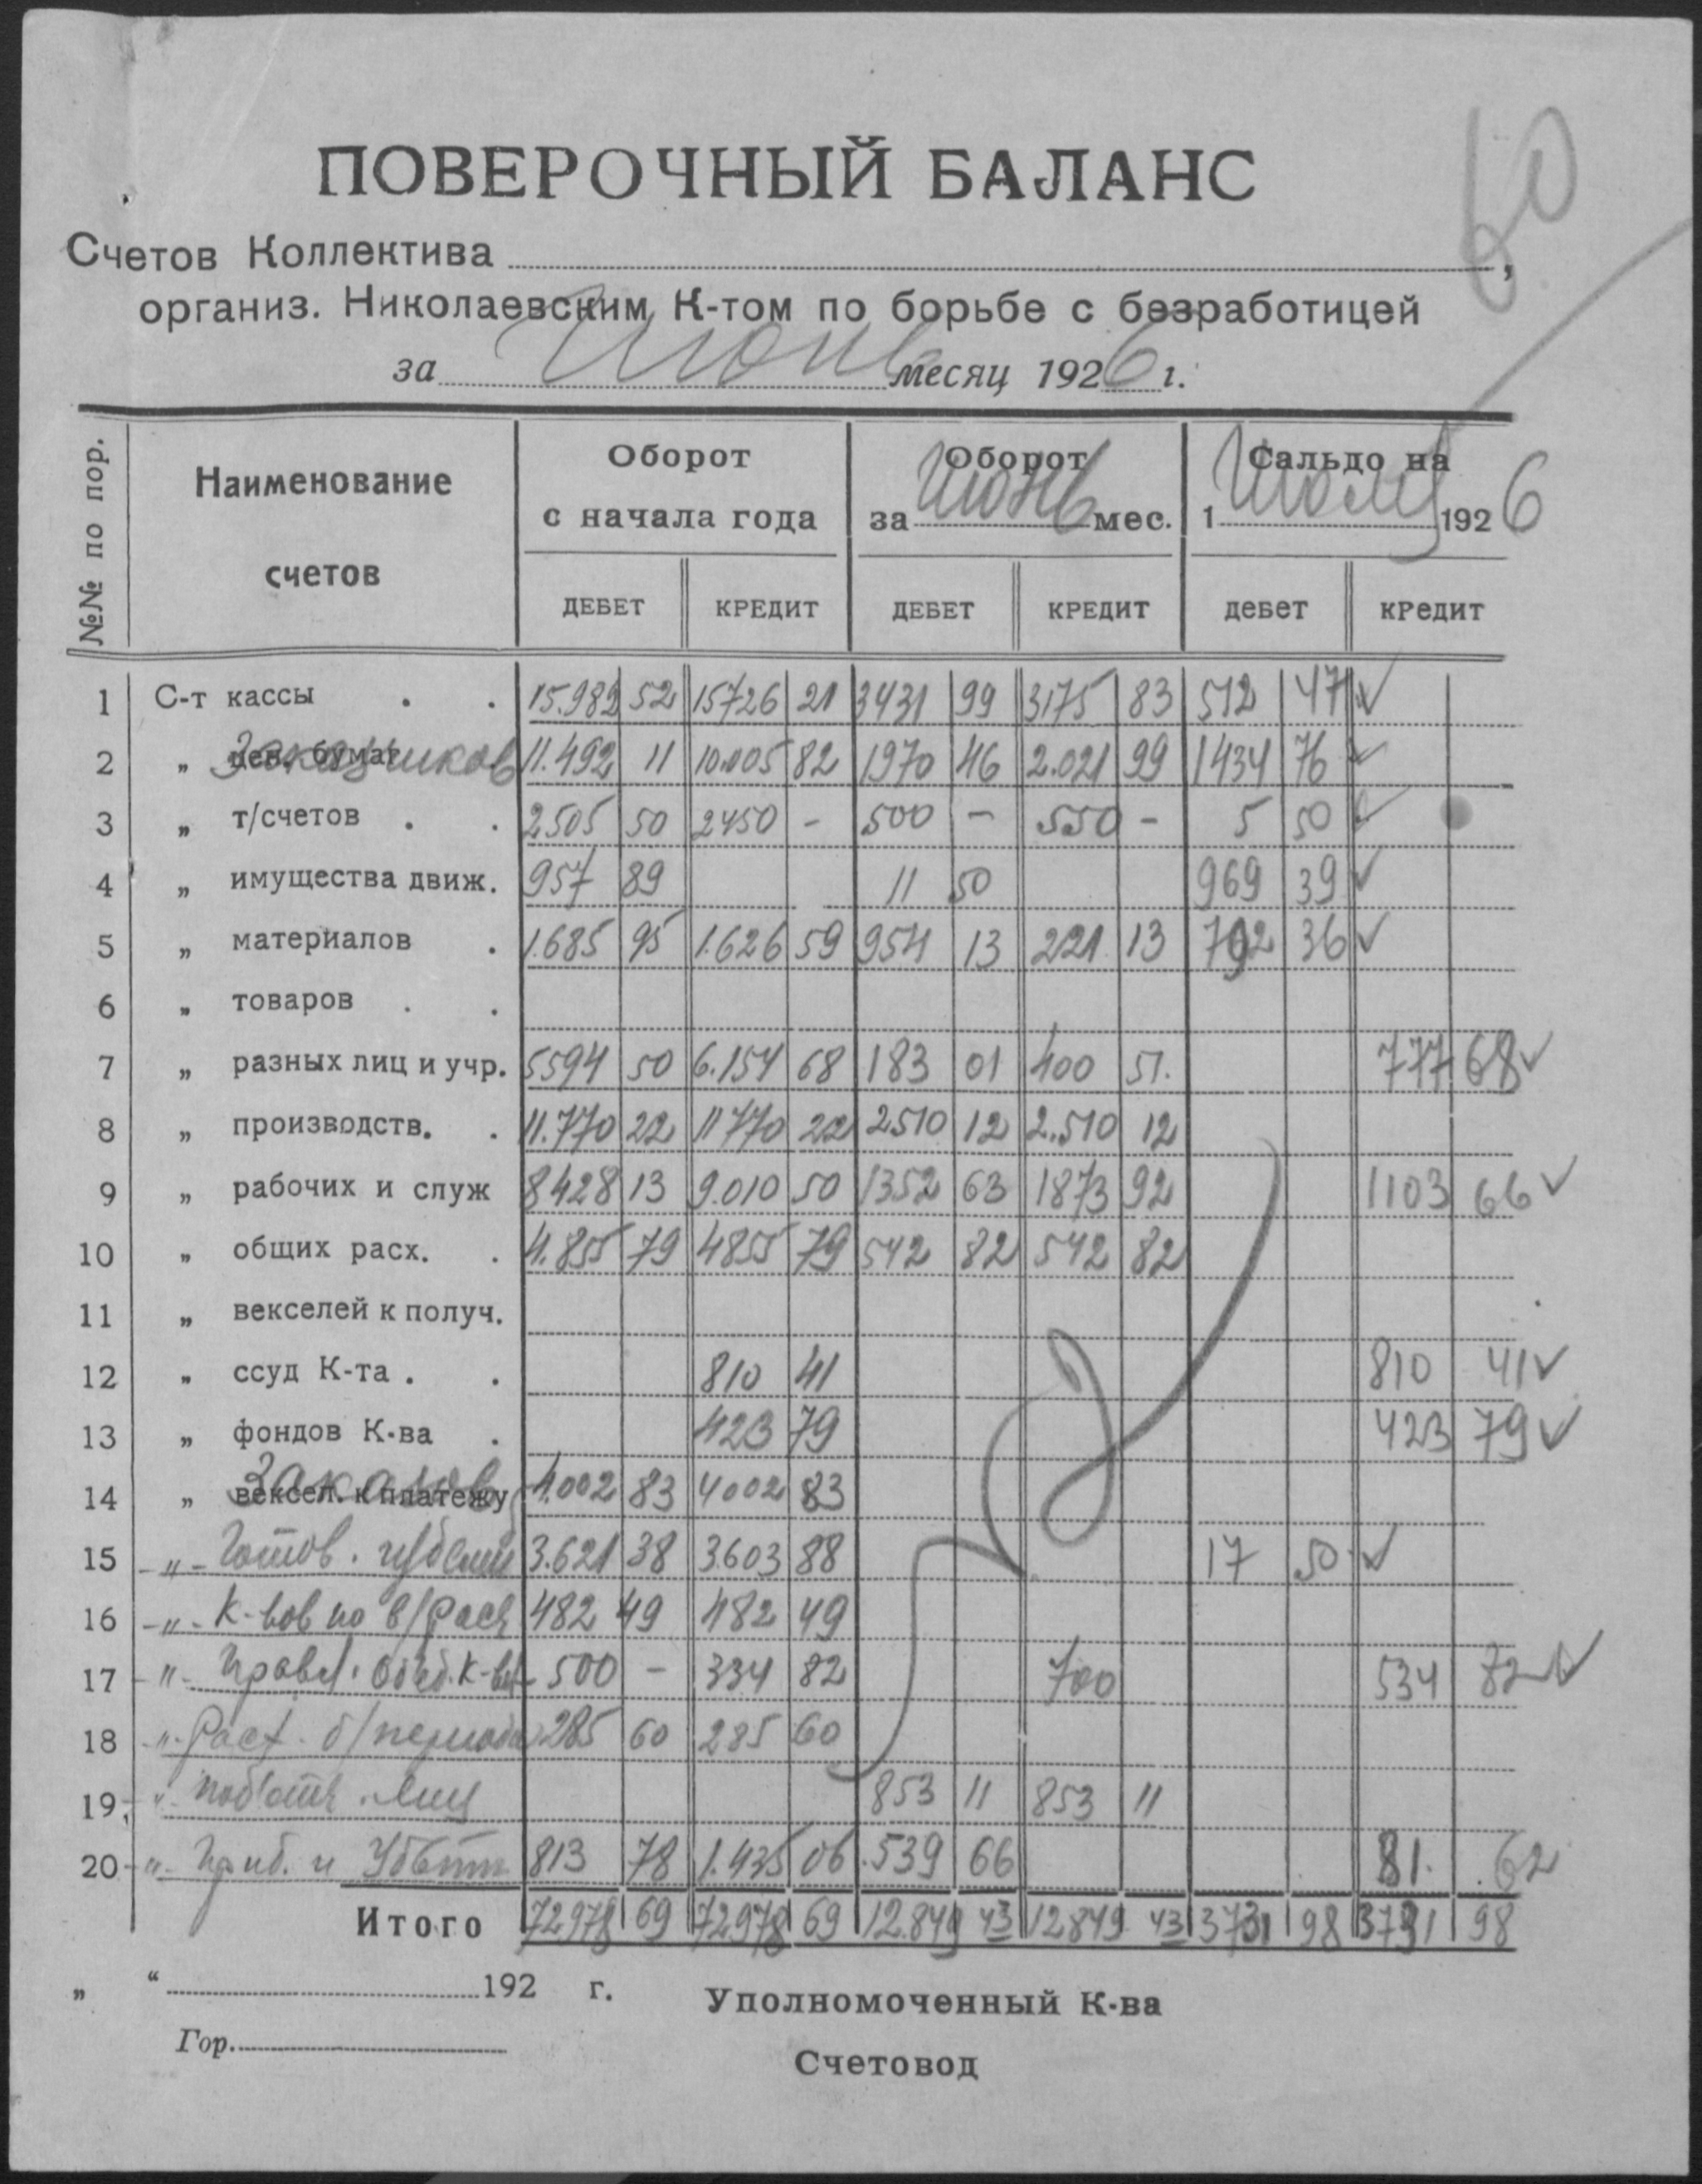 60
ПОВЕРОЧНЫЙ БАЛАНС
Счетов Коллектива ,
организ. Николаевским К-том по борьбе с безработицей
за Июнь месяц 1926 г.
№№ по пор. Наименование счетов Оборот с начала года Оборот за Июнь мес. Сальдо на 1 Июля 1926
ДЕБЕТ КРЕДИТ ДЕБЕТ КРЕДИТ дебет кредит
1 С-т кассы . . 15.982 52 15726 21 3431 99 3175 83 512 47
2 „ цен. бумаг Заказчиков 11.492 11 10.005 82 1970 46 2.021 99 1434 76
3 „ т/счетов . . 2505 50 2450 - 500 - 550 - 5 50
4 „ имущества движ. 957 89 11 50 969 39
5 „ материалов . 1.685 95 1.626 59 954 13 221 13 792 36
6 „ товаров . .
7 „ разных лиц и учр. 5594 50 6.154 68 183 01 400 51. 777 68
8 „ производств. . 11.770 22 11770 22 2510 12 2.510 12
9 „ рабочих и служ 8428 13 9.010 50 1352 63 1873 92 1103 66
10 „ общих расх. . 4.855 79 4855 79 542 82 542 82
11 „ векселей к получ.
12 „ ссуд К-та . . 810 41 810 41
13 „ фондов К-ва . 423 79 423 79
14 „ вексел. к платежу Заказов 4.002 83 4002 83
15 -„- Готов. 3.621 38 3.603 88 17 50
16 -„- К-вов по в/расч 482 49 482 49
17 -„- Правл. Об'ед. К-вов 500 - 334 82 700 534 82
18 „ б/периода 285 60 285 60
19 „ Подотч. лиц 853 11 853 11
20 -„- Приб. и Убытк 813 78 1.435 06 539 66 81. 62
Итого 72978 69 72978 69 12.849 43 12849 43 3731 98 3731 98
„ “ 192 г. Уполномоченный К-ва
Гор.
Счетовод